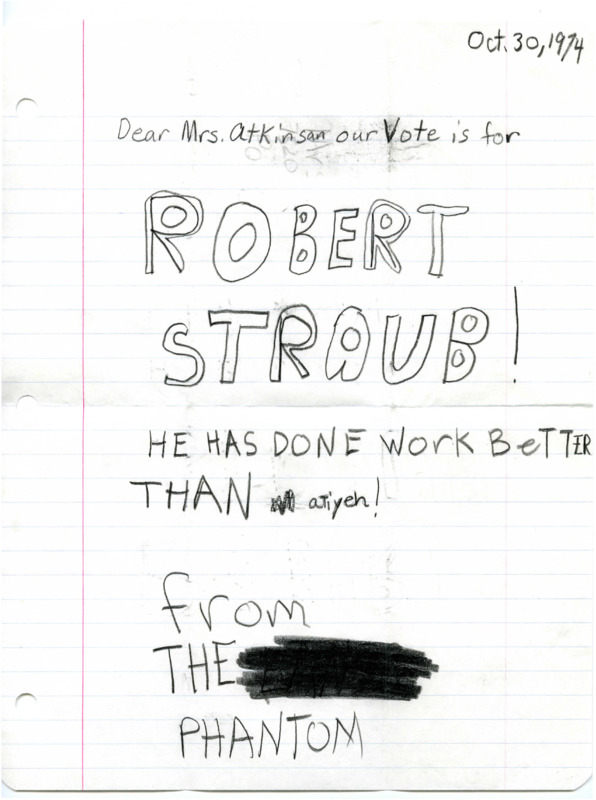 Oct. 30, 1974
Dear Mrs. Atkinson our Vote is for
ROBERT
STRAUB!
HE HAS DONE Work BeTTER
THAN atiyeh!
from
THE
PHANTOM